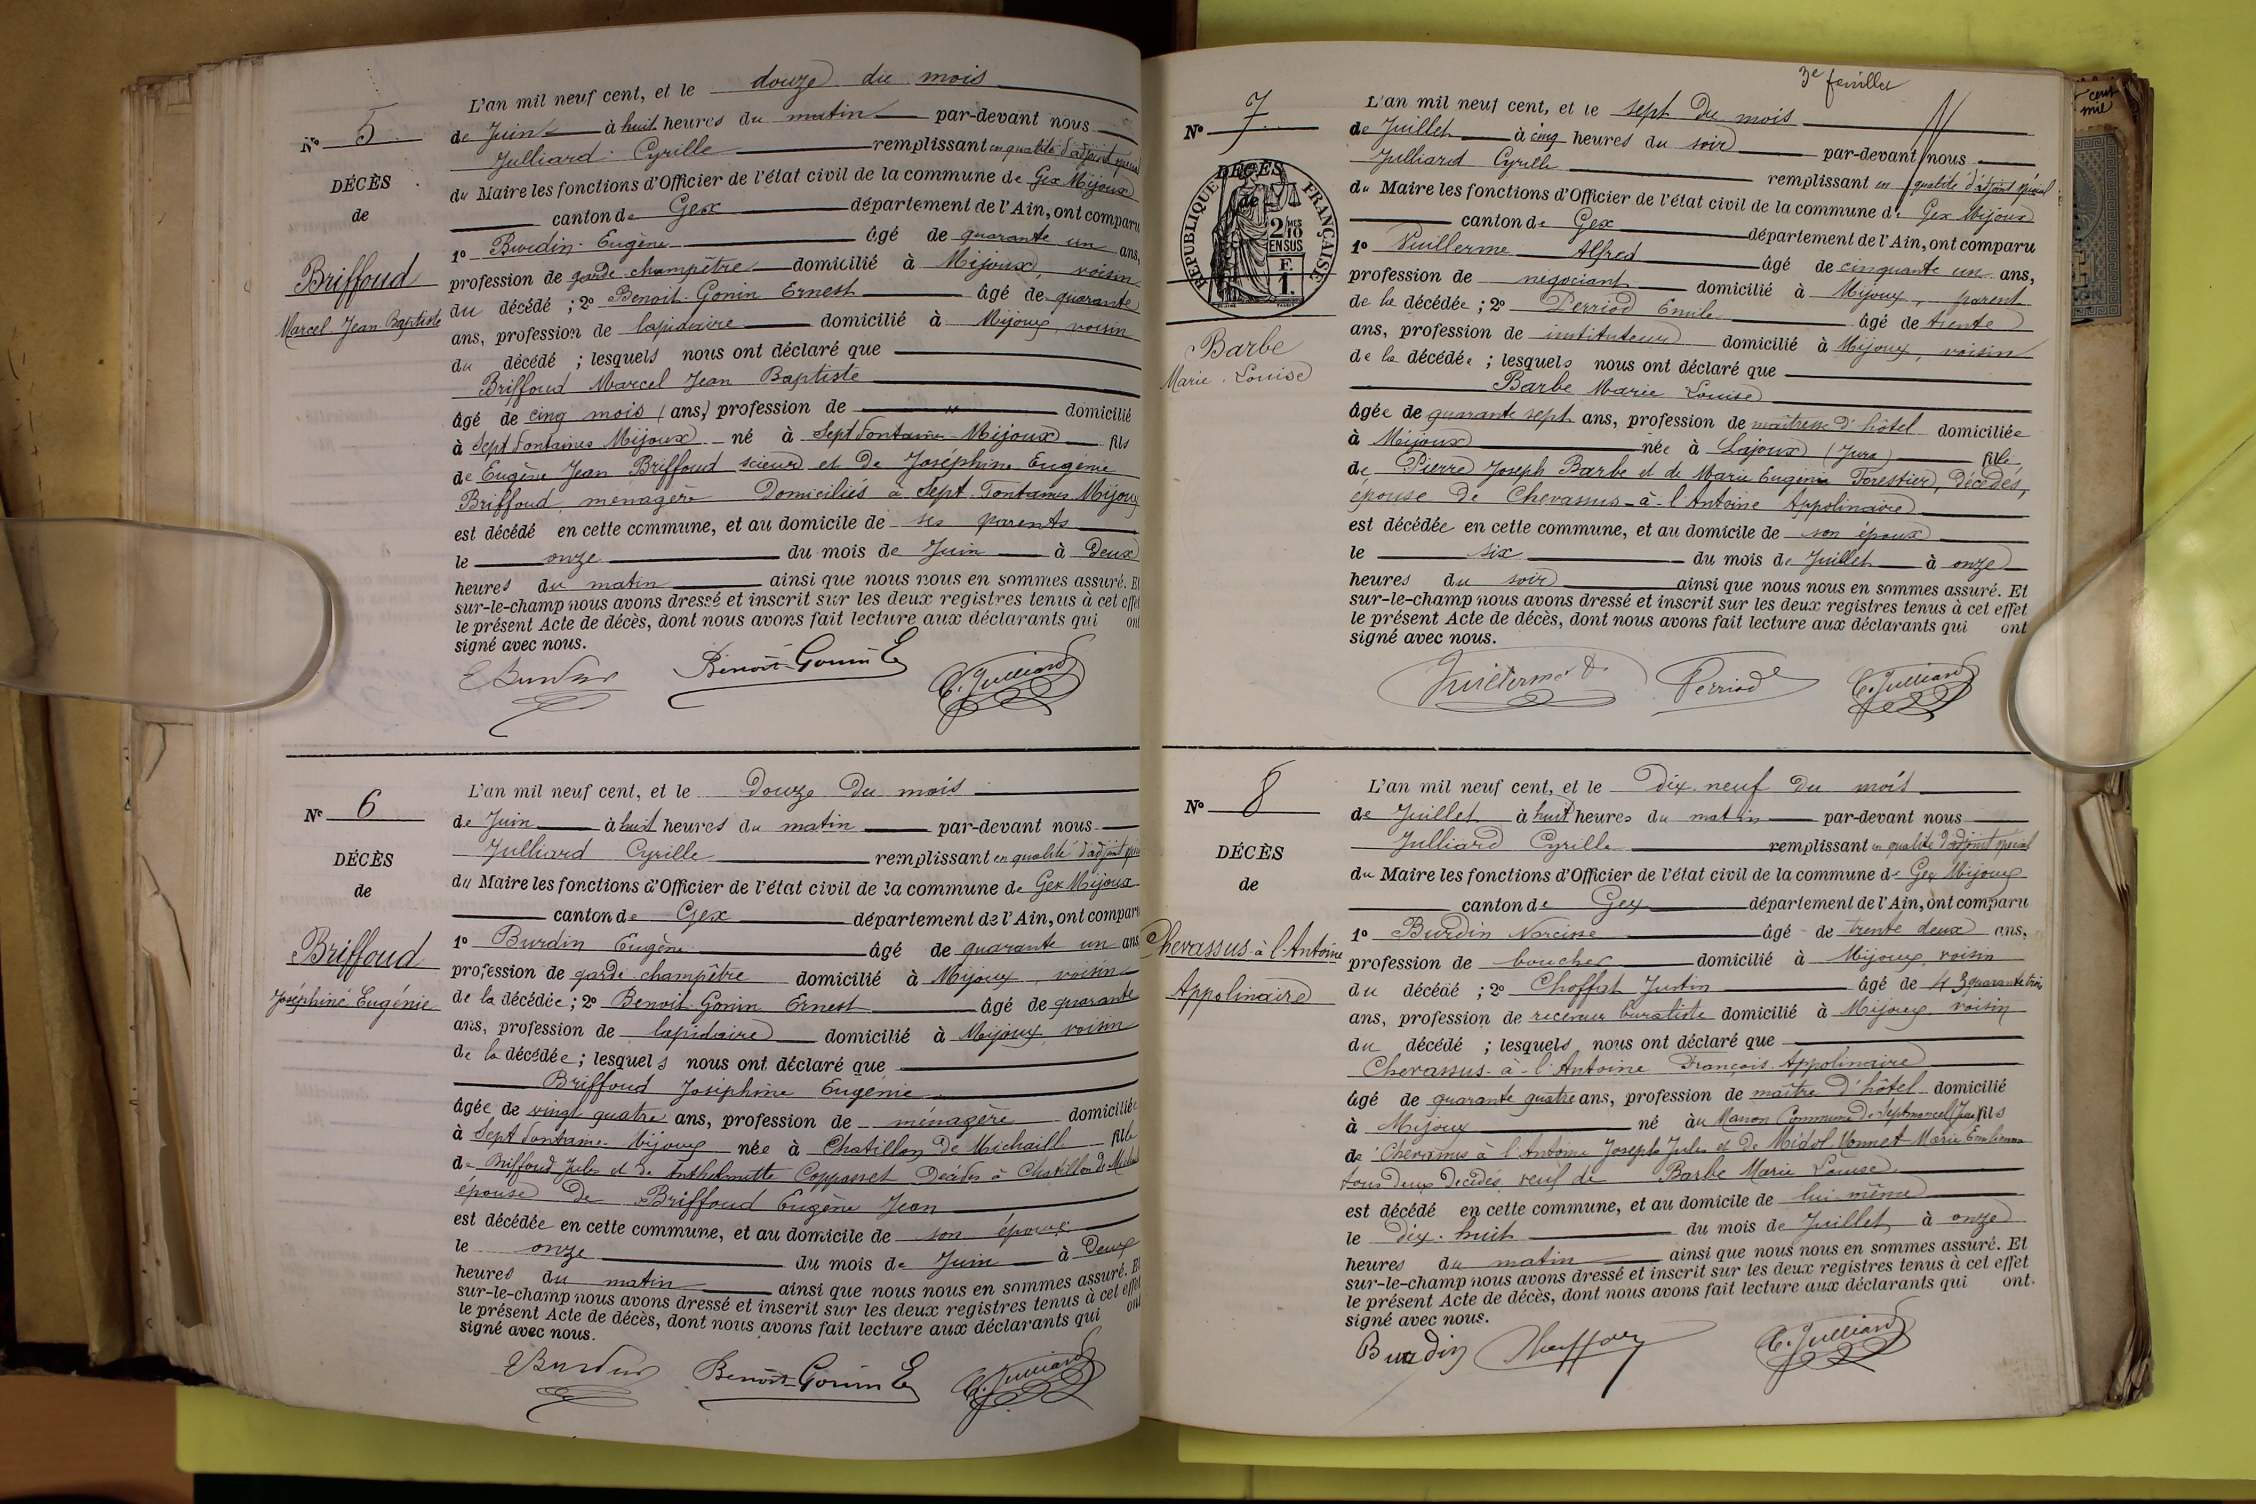 L'an mil neuf cent, et le douze du mois
Nº 5
de Juin à huit heures du matin par-devant nous
Julliard Cyrille remplissant en qualité d'adjoint spécial
DÉCÈS
du Maire les fonctions d'Officier de l'état civil de la commune de Gex Mijoux
de
canton de Gex département de l'Ain, ont comparu
1º Burdin Eugène âgé de quarante un ans,
Briffoud
profession de garde champêtre domicilié à Mijoux, voisin
Marcel Jean Baptiste
du décédé ; 2º Benoit-Gonin Ernest âgé de quarante
ans, profession de lapidaire domicilié à Mijoux, voisin
du décédé ; lesquels nous ont déclaré que
Briffoud Marcel Jean Baptiste
âgé de cinq mois (ans,) profession de " domicilié
à Sept Fontaines Mijoux né à Sept Fontaines Mijoux fils
de Eugène Jean Briffoud scieur et de Joséphine Eugénie
Briffoud, ménagère Domiciliés à Sept-Fontaines Mijoux
est décédé en cette commune, et au domicile de ses parents
le onze du mois de Juin à Deux
heures du matin ainsi que nous nous en sommes assuré. Et
sur-le-champ nous avons dressé et inscrit sur les deux registres tenus à cet effet
le présent Acte de décès, dont nous avons fait lecture aux déclarants qui ont
signé avec nous.
E Burdin Benoit-Gonin E C. Julliard
L'an mil neuf cent, et le Douze Du mois
Nº 6
de Juin à huit heures du matin par-devant nous
Julliard Cyrille remplissant en qualité d'adjoint spécial
DÉCÈS
du Maire les fonctions d'Officier de l'état civil de la commune de Gex Mijoux
de
canton de Gex département de l'Ain, ont comparu
1º Burdin Eugène âgé de quarante un ans
Briffoud
profession de garde-champêtre domicilié à Mijoux, voisin
Joséphine Eugénie
de la décédée ; 2º Benoit-Gonin Ernest âgé de quarante
ans, profession de lapidaire domicilié à Mijoux, voisin
de la décédée ; lesquels nous ont déclaré que
Briffoud Joséphine Eugénie
âgée de vingt quatre ans, profession de ménagère domiciliée
à Sept Fontaines Mijoux née à Chatillon de Michaille fille
de Briffoud Jules et de Anthelmette Décédés à Chatillon de
épouse De Briffoud Eugène Jean
est décédée en cette commune, et au domicile de son époux
le onze du mois de Juin à Deux
heures du matin ainsi que nous nous en sommes assuré. Et
sur-le-champ nous avons dressé et inscrit sur les deux registres tenus à cet effet
le présent Acte de décès, dont nous avons fait lecture aux déclarants qui ont
signé avec nous.
E Burdin Benoit-Gonin E C. Julliard
3e feuillet
L'an mil neuf cent, et le sept Du mois
Nº 7
de Juillet à cinq heures du soir par-devant nous
Julliard Cyrille remplissant en qualité d'adjoint spécial
DÉCÈS
de
RÉPUBLIQUE FRANÇAISE
2/10 MES
EN SUS
F.
1.
du Maire les fonctions d'Officier de l'état civil de la commune de Gex Mijoux
canton de Gex département de l'Ain, ont comparu
1º Vuillerme Alfred âgé de cinquante un ans,
profession de négociant domicilié à Mijoux, parent
de la décédée ; 2º Perriod Emile âgé de trente
ans, profession de instituteur domicilié à Mijoux, voisin
Barbe
Marie Louise
de la décédée ; lesquels nous ont déclaré que
Barbe Marie Louise
âgée de quarante sept ans, profession de maîtresse d'hôtel domiciliée
à Mijoux née à Lajoux (Jura) fille
de Pierre Joseph Barbe et de Marie Eugénie Forestier, Décédés,
épouse De Chevassus-à-l'Antoine Appolinaire
est décédée en cette commune, et au domicile de son époux
le six du mois de Juillet à onze
heures du soir ainsi que nous nous en sommes assuré. Et
sur-le-champ nous avons dressé et inscrit sur les deux registres tenus à cet effet
le présent Acte de décès, dont nous avons fait lecture aux déclarants qui ont
signé avec nous.
Vuillerme A Perriod C. Julliard
L'an mil neuf cent, et le Dix-neuf Du mois
Nº 8
de Juillet à huit heures du matin par-devant nous
Julliard Cyrille remplissant en qualité d'adjoint spécial
DÉCÈS
du Maire les fonctions d'Officier de l'état civil de la commune de Gex Mijoux
de
canton de Gex département de l'Ain, ont comparu
1º Burdin Narcisse âgé de trente deux ans,
Chevassus-à-l'Antoine
profession de boucher domicilié à Mijoux, voisin
Appolinaire
du décédé ; 2º Choffat Justin âgé de 43 quarante trois
ans, profession de receveur buraliste domicilié à Mijoux, voisin
du décédé ; lesquels nous ont déclaré que
Chevassus-à-l'Antoine François Appolinaire
âgé de quarante quatre ans, profession de maître d'hôtel domicilié
à Mijoux né au Manon Commune de Septmoncel (Jura) fils
de Chevassus à l'Antoine Joseph Jules et de Midol Monnet Marie
tous deux Décédés, veuf de Barbe Marie Louise
est décédé en cette commune, et au domicile de lui même
le Dix-huit du mois de Juillet à onze
heures du matin ainsi que nous nous en sommes assuré. Et
sur-le-champ nous avons dressé et inscrit sur les deux registres tenus à cet effet
le présent Acte de décès, dont nous avons fait lecture aux déclarants qui ont
signé avec nous.
Burdin C. Julliard
cent
mil